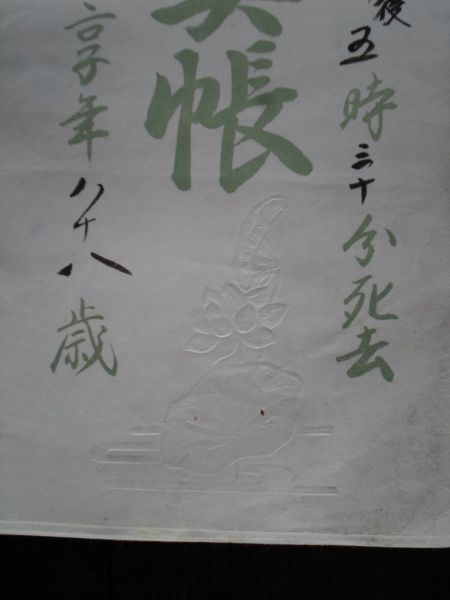 後五時三十分死去
奠帳
享年八十八歳